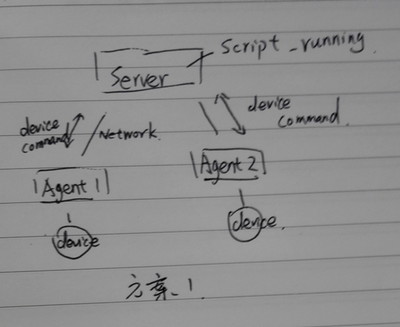 Script_running
Server
device
command
/Network.
device
command.
Agent 1
Agent 2
device
device.
方案、1